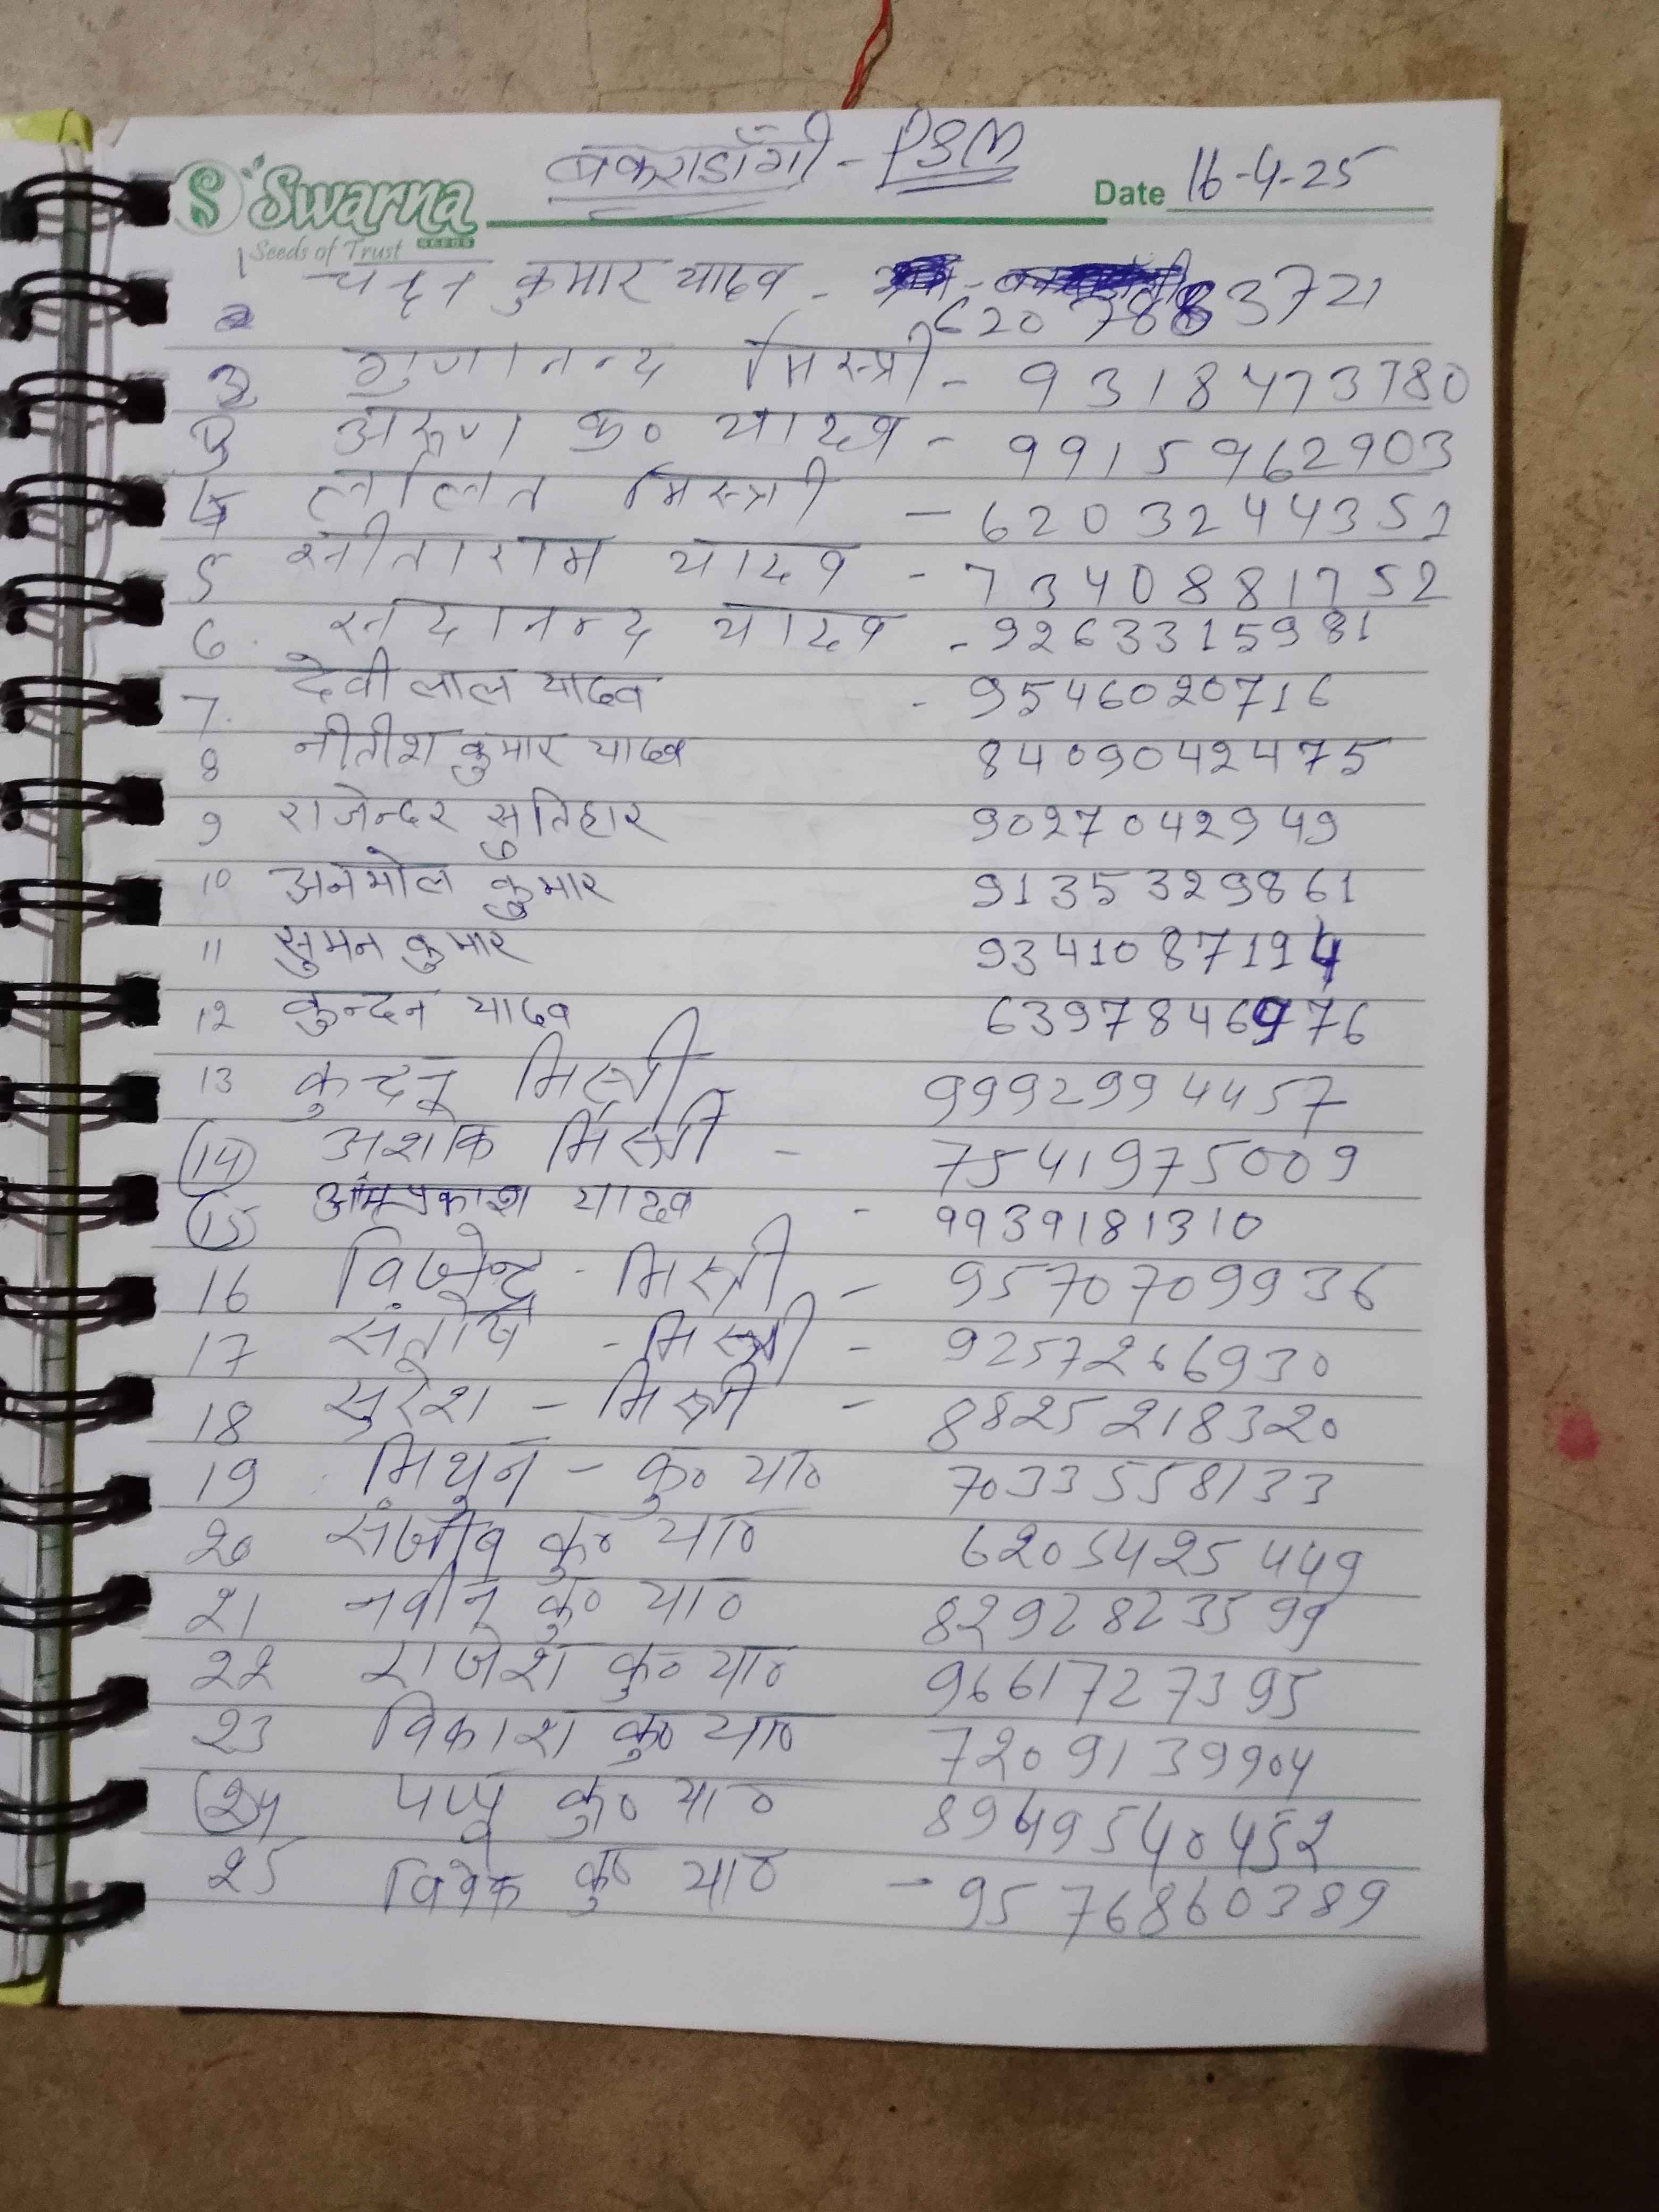 बकराडाँगी - PSM
Swarna
SEEDS
Seeds of Trust
Date 16-4-25
1 चन्दन कुमार यादव - 6207883721
2 गुणानन्द मिस्त्री - 9318473780
3 अरूण कु० यादव - 9915962903
4 ललित मिस्त्री - 6203244352
5 सीताराम यादव - 7340881752
6. सदानन्द यादव - 9263315981
7. देवी लाल यादव - 9546020716
8 नीतीश कुमार यादव 8409042475
9 राजेन्दर सुतिहार 9027042949
10 अनमोल कुमार 9135329861
11 सुमन कुमार 9341087194
12 कुन्दन यादव 6397846976
13 कुन्दन मिस्त्री 9992994457
(14) अशोक मिस्त्री - 7541975009
(15) ओमप्रकाश यादव - 9939181310
16 विजेन्द्र - मिस्त्री - 9570709936
17 संतोष - मिस्त्री - 9257266930
18 सुरेश - मिस्त्री - 8825218320
19 मिथुन - कु० या० 7033558133
20 संजीव कु० या० 6205425449
21 नवीन कु० या० 8292823599
22 राजेश कु० या० 9661727395
23 विकाश कु० या० 7209139904
(24 पप्पू कु० या० 8949540452
25 विवेक कु० या० - 9576860389